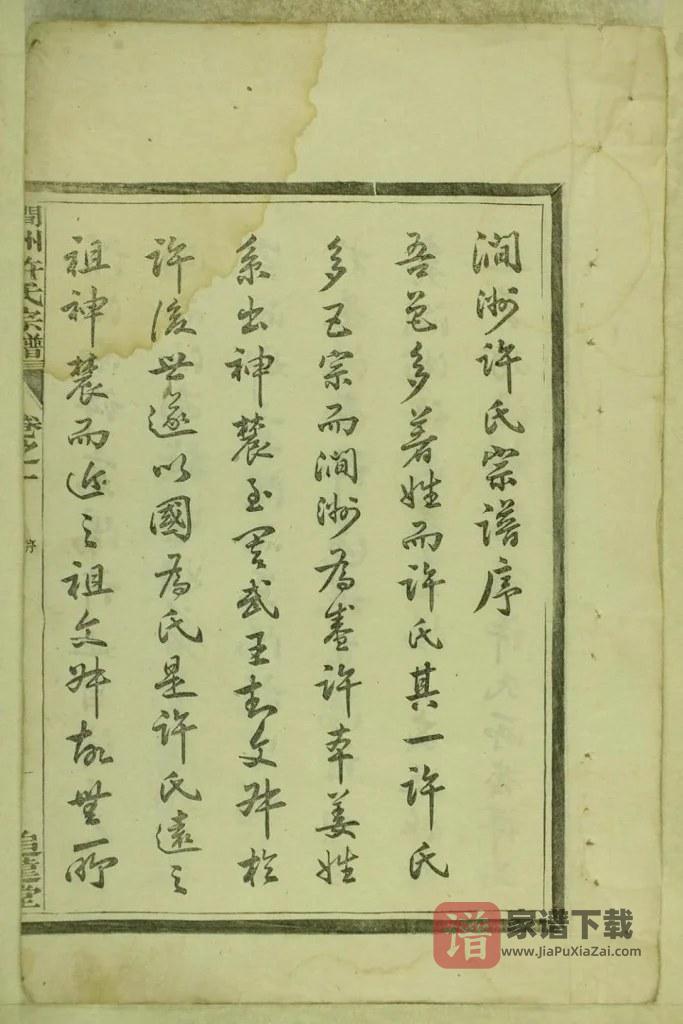 澗洲許氏宗譜序
吾邑多著姓而許氏其一許氏
多巨宗而澗洲為盛許本姜姓
系出神農至周武王封文叔於
許後世遂以國為氏是許氏遠之
祖神農而近之祖文叔故無一所
澗洲許氏宗譜
卷之一
序
追遠堂
譜
家谱下载
www.JiaPuXiaZai.com